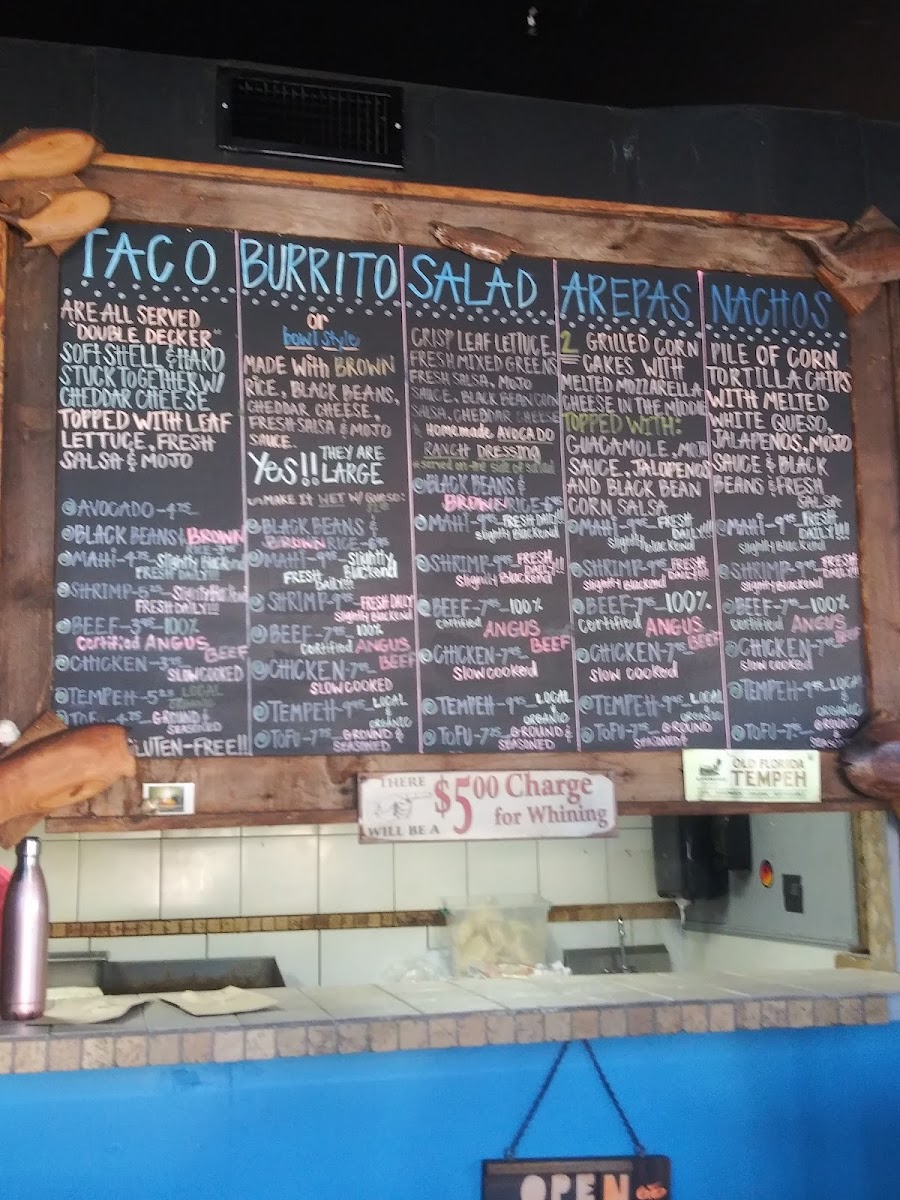 TACO
ARE ALL SERVED
"DOUBLE DECKER"
SOFT SHELL & HARD
STUCK TOGETHER W/
CHEDDAR CHEESE
TOPPED WITH LEAF
LETTUCE, FRESH
SALSA & MOJO
AVOCADO-4
BLACK BEANS & BROWN
RICE
MAHI-4 Slightly Blackend
FRESH DAILY!!!
SHRIMP-5
FRESH DAILY!!!
BEEF-3 100%
certified ANGUS BEEF
CHICKEN-3
SLOW COOKED
TEMPEH-5 LOCAL
ORGANIC
TOFU-4 GROUND &
SEASONED
GLUTEN-FREE!!
BURRITO
or
bowl style
MADE With BROWN
RICE, BLACK BEANS,
CHEDDAR CHEESE,
FRESH SALSA & MOJO
SAUCE.
Yes!! THEY ARE
LARGE
MAKE IT WET W/ QUESO:
BLACK BEANS &
BROWN RICE-6
MAHI-9 Slightly
Blackend
FRESH DAILY!!!
SHRIMP-9 FRESH DAILY
Slightly Blackend
BEEF-7 100%
certified ANGUS BEEF
CHICKEN-7
SLOW COOKED
TEMPEH-9 LOCAL
& ORGANIC
TOFU-7 GROUND &
SEASONED
SALAD
CRISP LEAF LETTUCE
FRESH MIXED GREENS
FRESH SALSA, MOJO
SAUCE, BLACK BEAN CORN
SALSA, CHEDDAR CHEESE
& HOMEMADE AVOCADO
RANCH DRESSING
served on the side of salad
BLACK BEANS &
BROWN RICE-6
MAHI-9 FRESH DAILY!!
slightly Blackend
SHRIMP-9 FRESH
DAILY!!
Slightly Blackend
BEEF-7 100%
certified ANGUS BEEF
CHICKEN-7
Slow cooked
TEMPEH-9 LOCAL
& ORGANIC
TOFU-7 GROUND &
SEASONED
AREPAS
2 GRILLED CORN
CAKES WITH
MELTED MOZZARELLA
CHEESE IN THE MIDDLE
TOPPED WITH:
GUACAMOLE, MOJO
SAUCE, JALAPENOS
AND BLACK BEAN
CORN SALSA
MAHI-9 FRESH
DAILY!!!
slightly Blackend
SHRIMP-9 FRESH
DAILY!!
slightly Blackend
BEEF-7 100%
certified ANGUS BEEF
CHICKEN-7
Slow cooked
TEMPEH-9 LOCAL
& ORGANIC
TOFU-7 GROUND &
SEASONED
NACHOS
PILE OF CORN
TORTILLA CHIPS
WITH MELTED
WHITE QUESO,
JALAPENOS, MOJO
SAUCE & BLACK
BEANS & FRESH
SALSA
MAHI-9 FRESH
DAILY!!!
slightly Blackend
SHRIMP-9 FRESH
DAILY!!!
Slightly Blackend
BEEF-7 100%
certified ANGUS BEEF
CHICKEN-7
slow cooked
TEMPEH-9 LOCAL
& ORGANIC
TOFU-7 GROUND &
SEASONED
THERE
WILL BE A
$5.00 Charge
for Whining
OLD FLORIDA
TEMPEH
OPEN